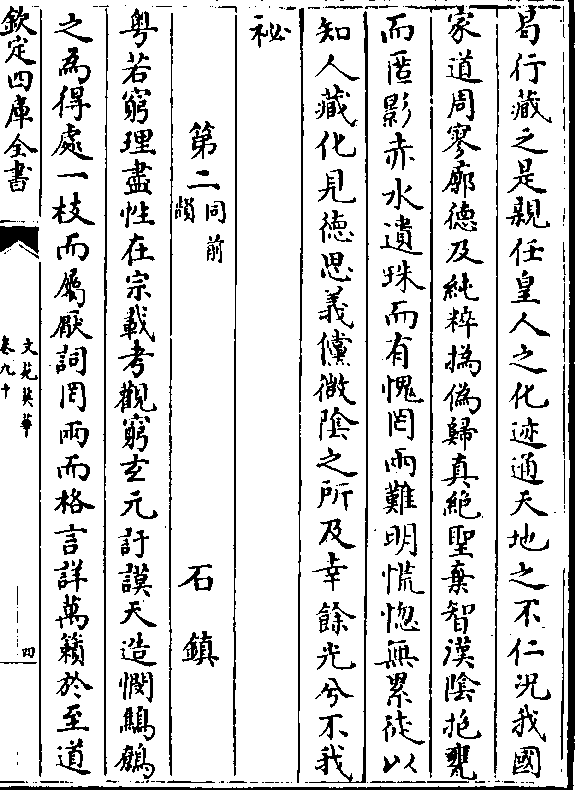 曷行藏之是親任皇人之化迹通天地之不仁況我國
家道周寥廓德及純粹撝偽歸真絶聖棄智漢陰抱甕
而匿影赤水遺珠而有愧罔兩難明慌惚無累徒以
知人藏化見德思義儻微陰之所及幸餘光兮不我
祕
第二同前韻 石鎮
粤若窮理盡性在宗載考觀窮玄元訏謨天造憫鷦鷯
之為得處一枝而屬厭詞罔兩而格言詳萬籟於至道
欽定四庫全書
文苑英華
卷九十
四